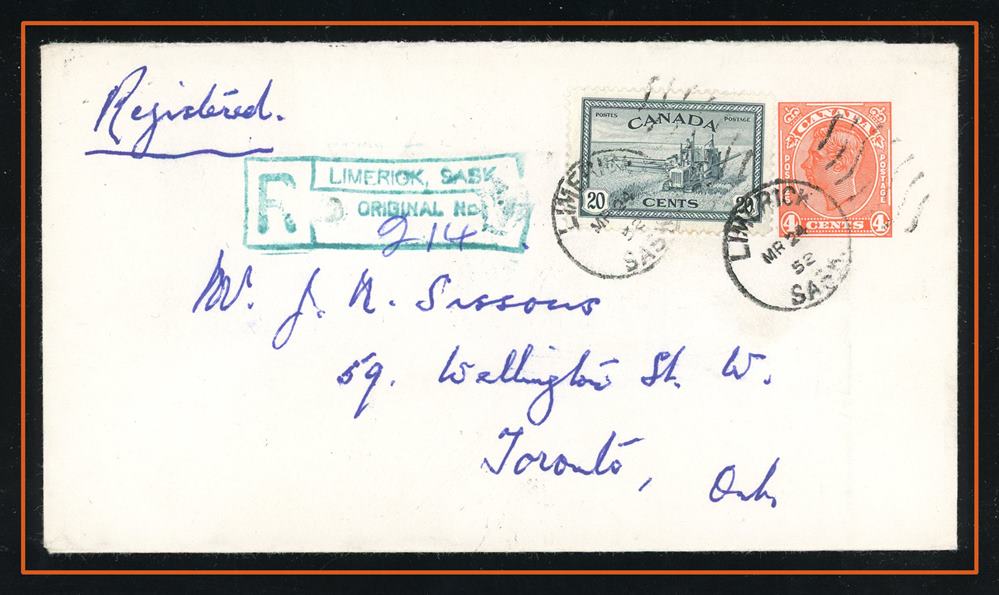 Registered.
POSTES POSTAGE
CANADA
20 20
CENTS
CANADA
POSTAGE
4 CENTS 4
R LIMERICK, SASK
ORIGINAL No.
214
LIMERICK
MR 24
52
SASK.
LIMERICK
MR 24
52
SASK.
Mr. J. N. Sissons
59. Wellington St. W.
Toronto, Ont.